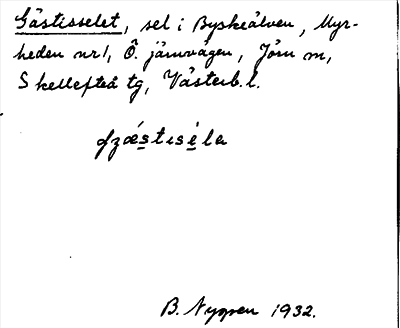 Gästisselet, sel i Byskeälven, Myr-
heden nr 1, Ö. järnvägen, Jörn sn,
Skellefteå tg, Västerb. l.
B. Nygren 1932.